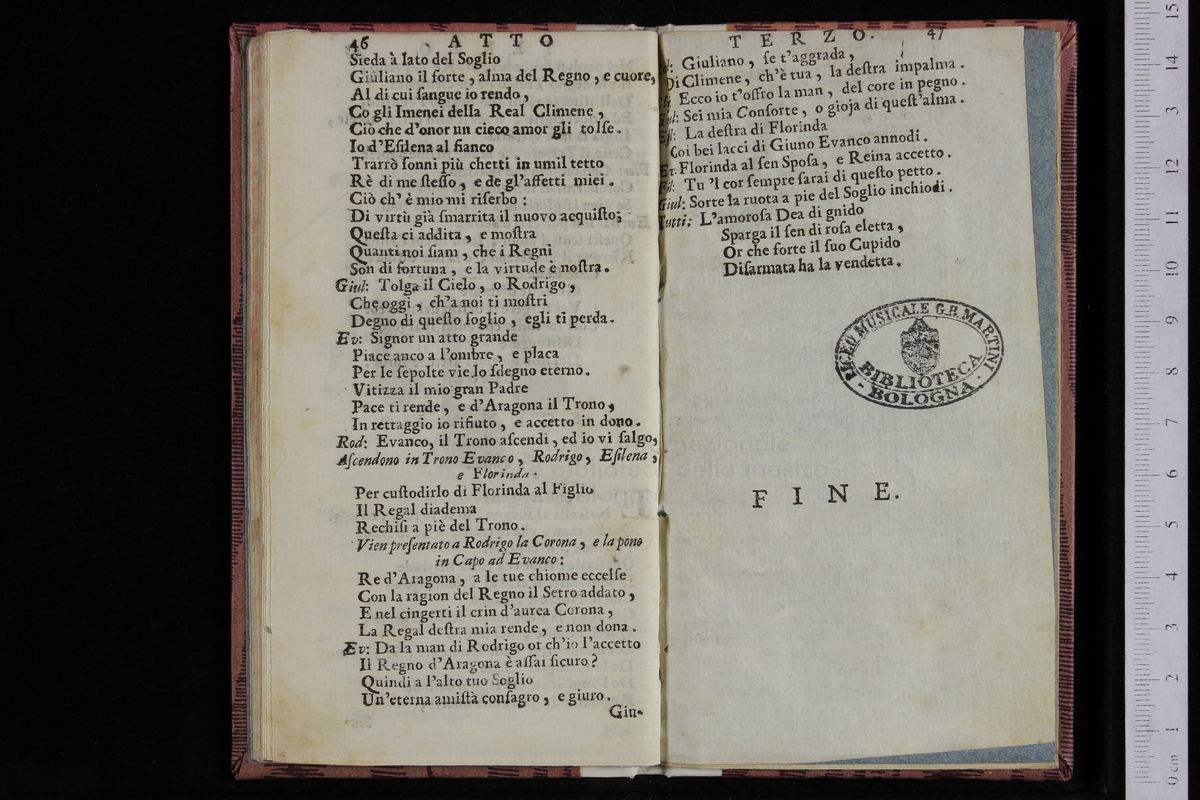 46 ATTO
Sieda à lato del Soglio
Giuliano il forte, alma del Regno, e cuore,
Al di cui sangue io rendo,
Co gli Imenei della Real Climene,
Ciò che d'onor un cieco amor gli tolse.
Io d'Esilena al fianco
Trarrò sonni più chetti in umil tetto
Rè di me stesso, e de gl'affetti miei.
Ciò ch' è mio mi riserbo:
Di virtù già smarrita il nuovo acquisto;
Questa ci addita, e mostra
Quanti noi siam, che i Regni
Son di fortuna, e la virtude è nostra.
Giul: Tolga il Cielo, o Rodrigo,
Che oggi, ch'a noi ti mostri
Degno di questo soglio, egli ti perda.
Ev: Signor un atto grande
Piace anco a l'ombre, e placa
Per le sepolte vie lo sdegno eterno.
Vitizza il mio gran Padre
Pace ti rende, e d'Aragona il Trono,
In rettaggio io rifiuto, e accetto in dono.
Rod: Evanco, il Trono ascendi, ed io vi salgo,
Ascendono in Trono Evanco, Rodrigo, Esilena,
e Florinda.
Per custodirlo di Florinda al Figlio
Il Regal diadema
Rechisi a piè del Trono.
Vien presentato a Rodrigo la Corona, e la pone
in Capo ad Evanco:
Re d'Aragona, a le tue chiome eccelse
Con la ragion del Regno il Setro addato,
E nel cingerti il crin d'aurea Corona,
La Regal destra mia rende, e non dona.
Ev: Da la man di Rodrigo or ch'io l'accetto
Il Regno d'Aragona è assai sicuro?
Quindi a l'alto tuo Soglio
Un'eterna amistà consagro, e giuro.
Giu-
TERZO. 47
Giuliano, se t'aggrada,
Di Climene, ch'è tua, la destra impalma.
Ecco io t'offro la man, del core in pegno.
Giul: Sei mia Consorte, o gioja di quest'alma.
Esil: La destra di Florinda
Coi bei lacci di Giuno Evanco annodi.
Ev. Florinda al sen Sposa, e Reina accetto.
Tu 'l cor sempre sarai di questo petto.
Giul: Sorte la ruota a pie del Soglio inchiodi.
Tutti: L'amorosa Dea di gnido
Sparga il sen di rosa eletta,
Or che forte il suo Cupido
Disarmata ha la vendetta.
LICEO MUSICALE G.B. MARTINI
BIBLIOTECA
- BOLOGNA -
FINE.
0 cm 1 2 3 4 5 6 7 8 9 10 11 12 13 14 15